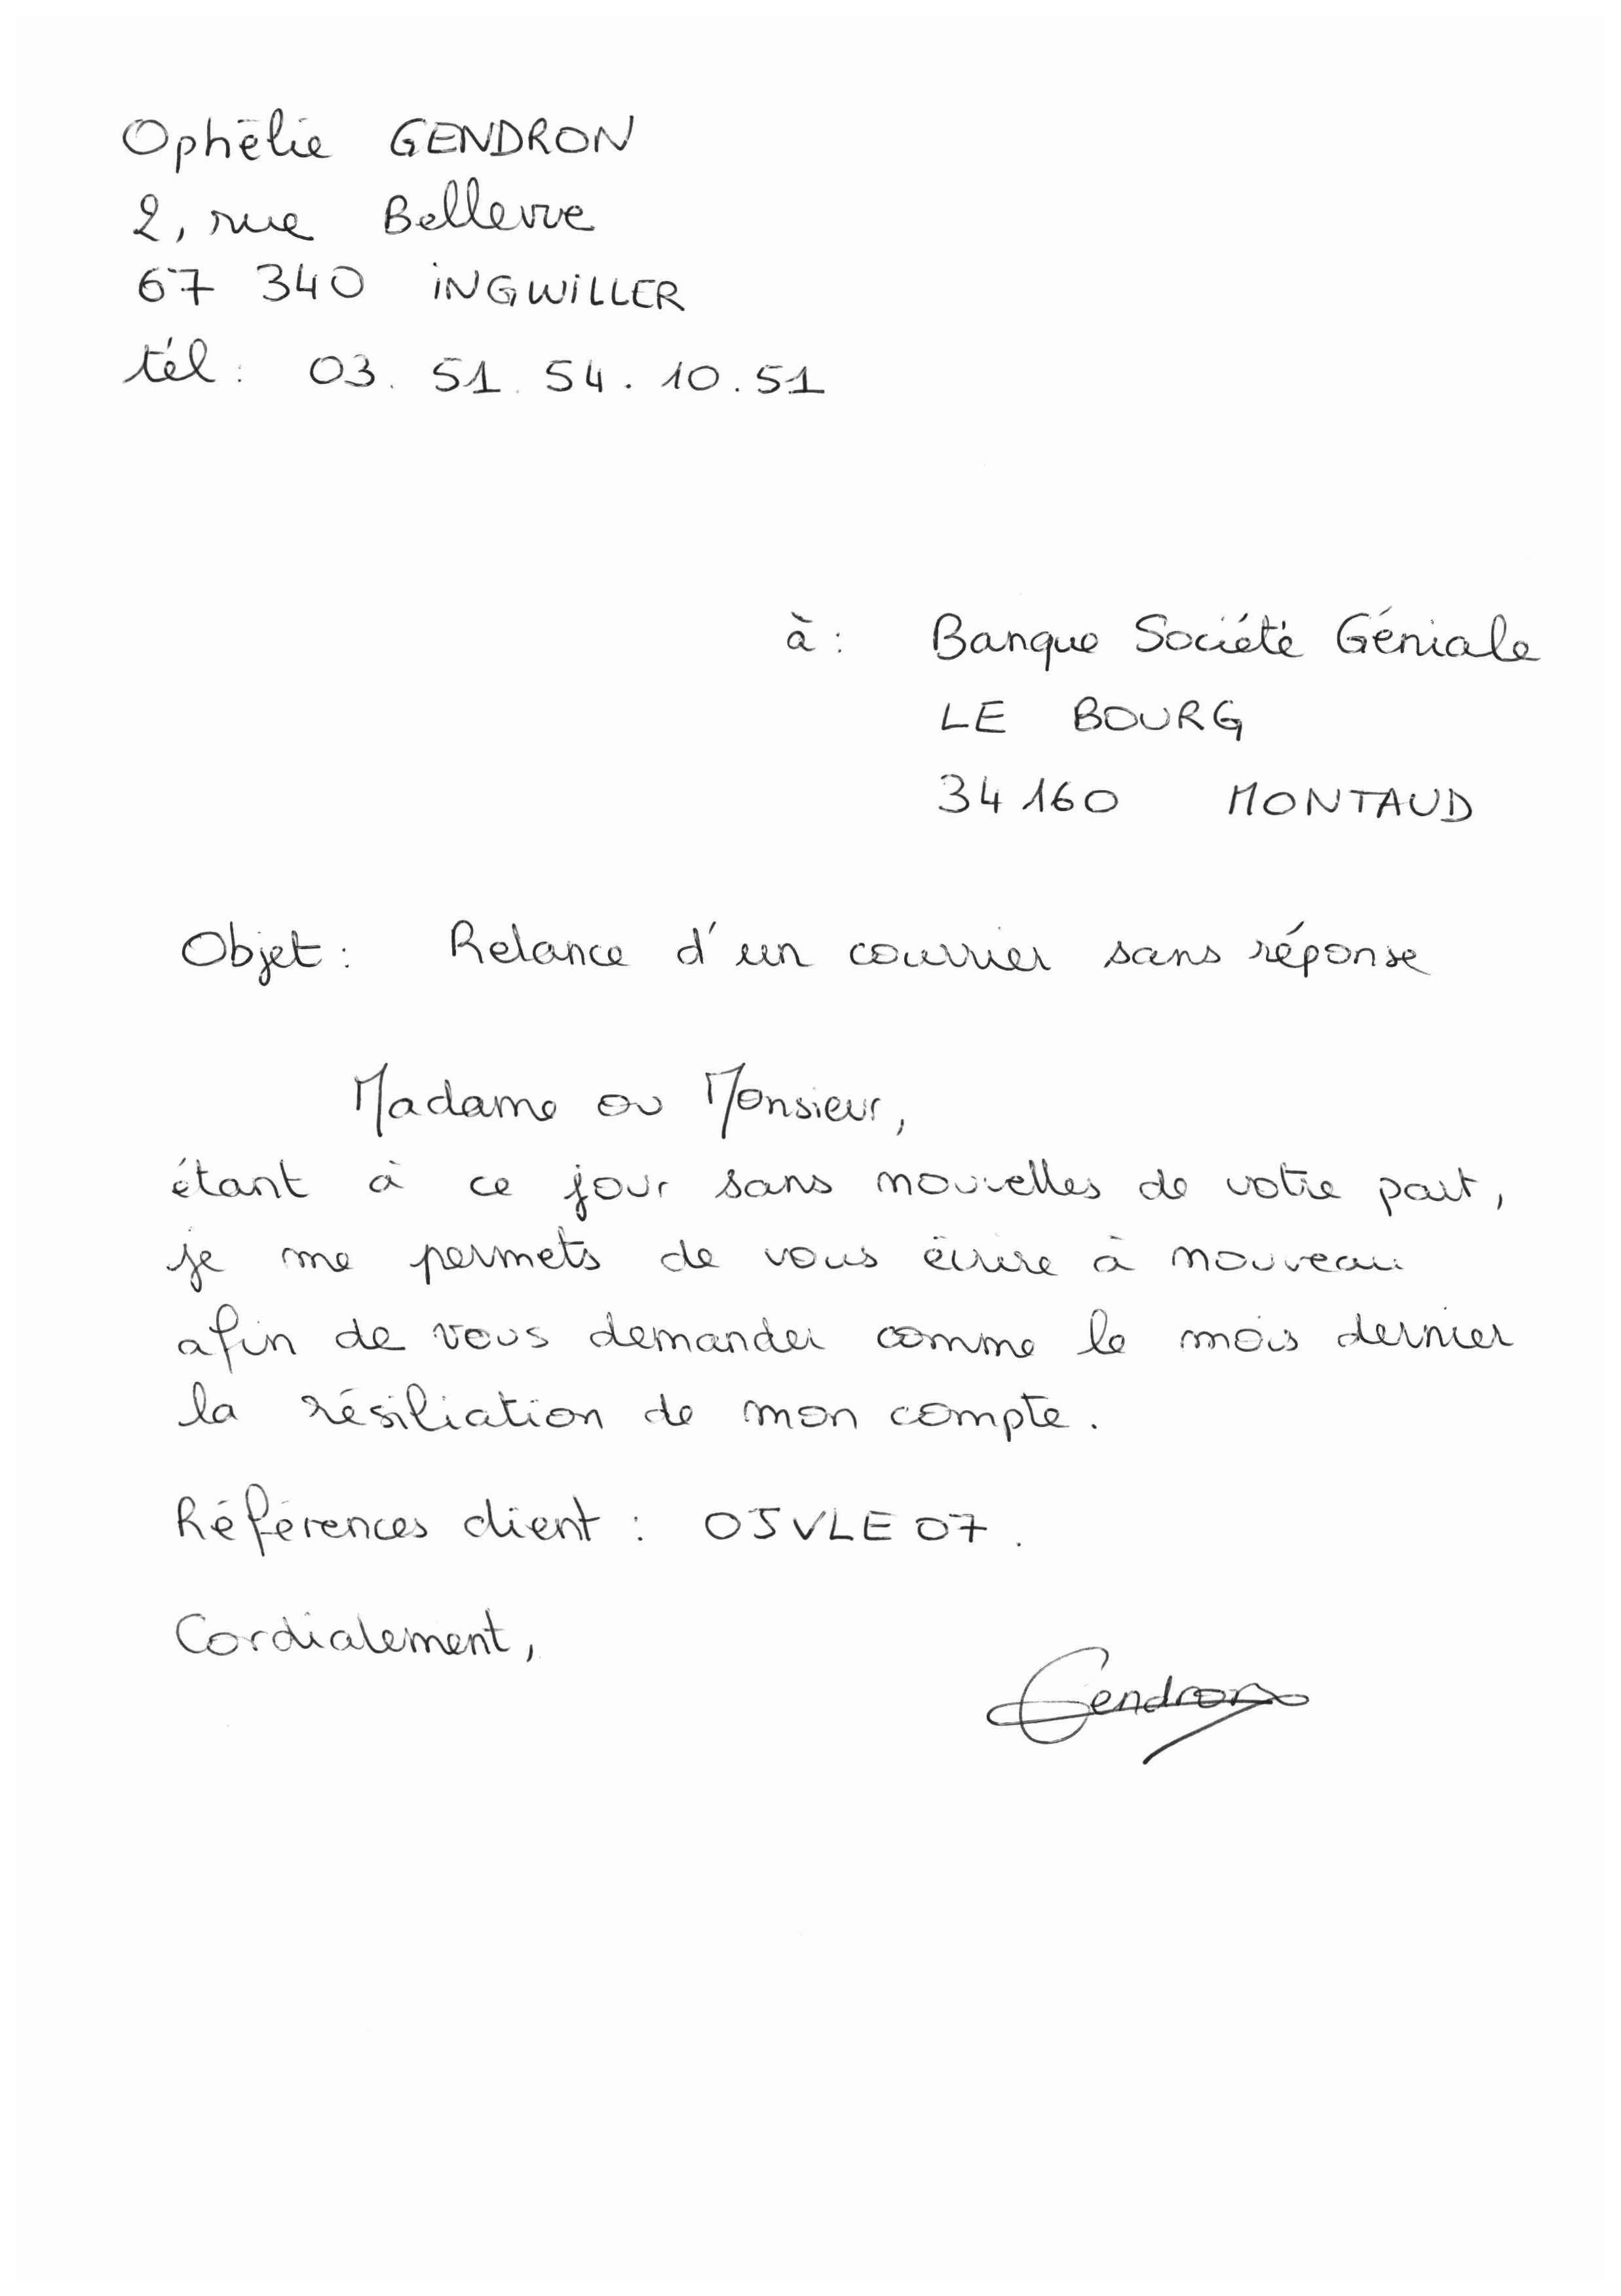 Ophélie GENDRON
2, rue Bellevue
67 340 INGWILLER
tél : 03. 51. 54. 10. 51
à : Banque Société Géniale
LE BOURG
34 160 MONTAUD
Objet : Relance d'un courrier sans réponse
Madame ou Monsieur,
étant à ce jour sans nouvelles de votre part,
je me permets de vous écrire à nouveau
afin de vous demander comme le mois dernier
la résiliation de mon compte.
Références client : OJVLE07.
Cordialement,
Gendron